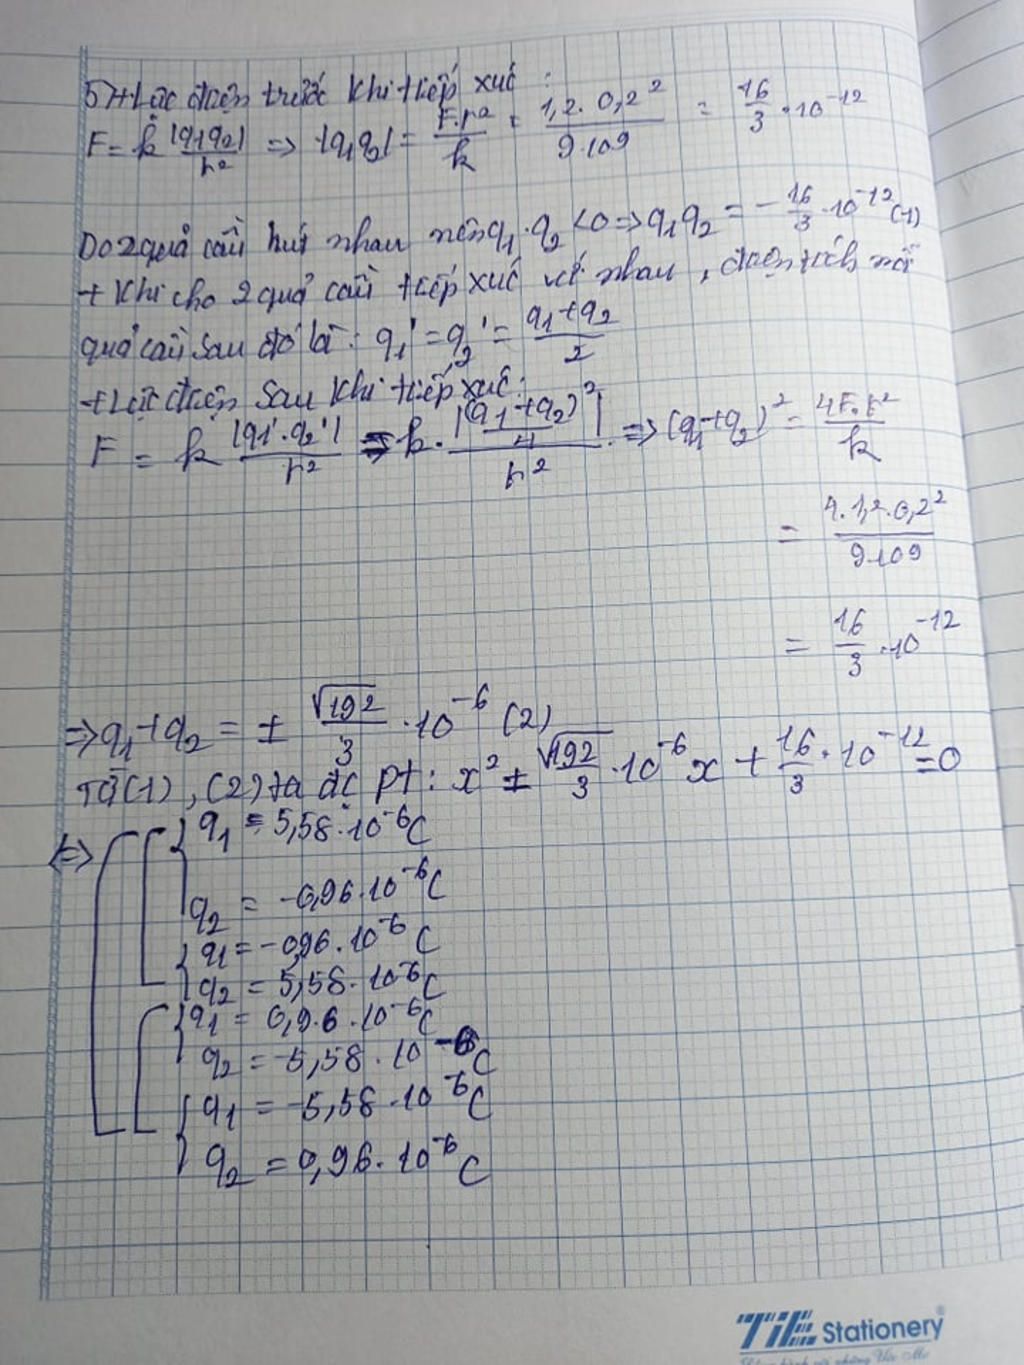 5) + Lực điện trước khi tiếp xúc :
F = k |q1q2|/r² => |q1q2| = F.r²/k = 1,2.0,2²/9.10⁹ = 16/3 .10⁻¹²
Do 2 quả cầu hút nhau nên q1.q2 <0 => q1q2 = -16/3 .10⁻¹² (1)
+ Khi cho 2 quả cầu tiếp xúc với nhau, điện tích mỗi
quả cầu sau đó là: q1' = q2' = (q1+q2)/2
+ Lực điện sau khi tiếp xúc:
F = k |q1'.q2'|/r² => k. |(q1+q2)²/4|/r² => (q1+q2)² = 4F.r²/k
= 4.1,2.0,2²/9.10⁹
= 16/3 .10⁻¹²
=> q1+q2 = ± √192/3 .10⁻⁶ (2)
Từ (1), (2) ta đc pt: x² ± √192/3 .10⁻⁶x + 16/3 .10⁻¹² = 0
<=> q1 = 5,58.10⁻⁶C
q2 = -0,96.10⁻⁶C
q1 = -0,96.10⁻⁶C
q2 = 5,58.10⁻⁶C
q1 = 0,96.10⁻⁶C
q2 = -5,58.10⁻⁶C
q1 = -5,58.10⁻⁶C
q2 = 0,96.10⁻⁶C
TiE Stationery